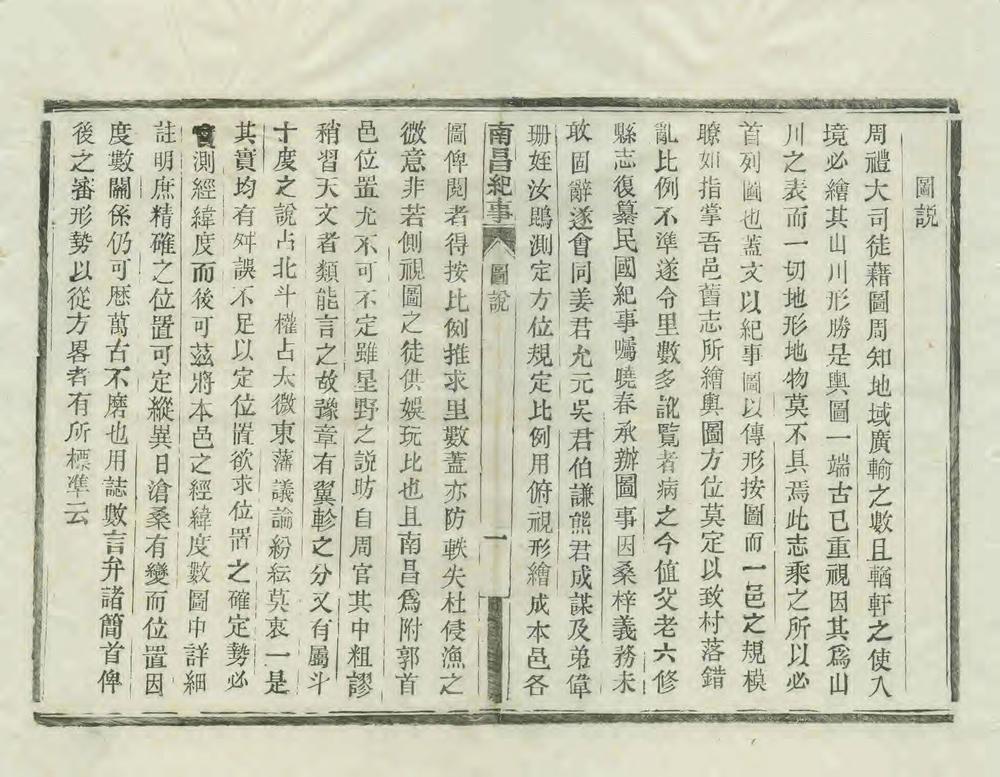 圖説
周禮大司徒藉圖周知地域廣輪之數且輶軒之使入
境必繪其山川形勝是輿圖一端古已重視因其爲山
川之表而一切地形地物莫不具焉此志乘之所以必
首列圖也蓋文以紀事圖以傳形按圖而一邑之規模
暸如指掌吾邑舊志所繪輿圖方位莫定以致村落錯
亂比例不準遂令里數多訛覽者病之今值父老六修
縣志復纂民國紀事囑曉春承辦圖事因桑梓義務未
敢固辭遂會同姜君允元吳君伯謙熊君成謀及弟偉
珊姪汝鵾測定方位規定比例用俯視形繪成本邑各
南昌紀事 圖説 一
圖俾閱者得按比例推求里數蓋亦防軼失杜侵漁之
微意非若側視圖之徒供娛玩比也且南昌爲附郭首
邑位置尤不可不定雖星野之説昉自周官其中粗謬
稍習天文者類能言之故豫章有翼軫之分又有屬斗
十度之説占北斗權占太微東藩議論紛紜莫衷一是
其實均有舛誤不足以定位置欲求位置之確定勢必
實測經緯度而後可茲將本邑之經緯度數圖中詳細
註明庶精確之位置可定縱異日滄桑有變而位置因
度數關係仍可歷萬古不磨也用誌數言弁諸簡首俾
後之審形勢以從方畧者有所標準云